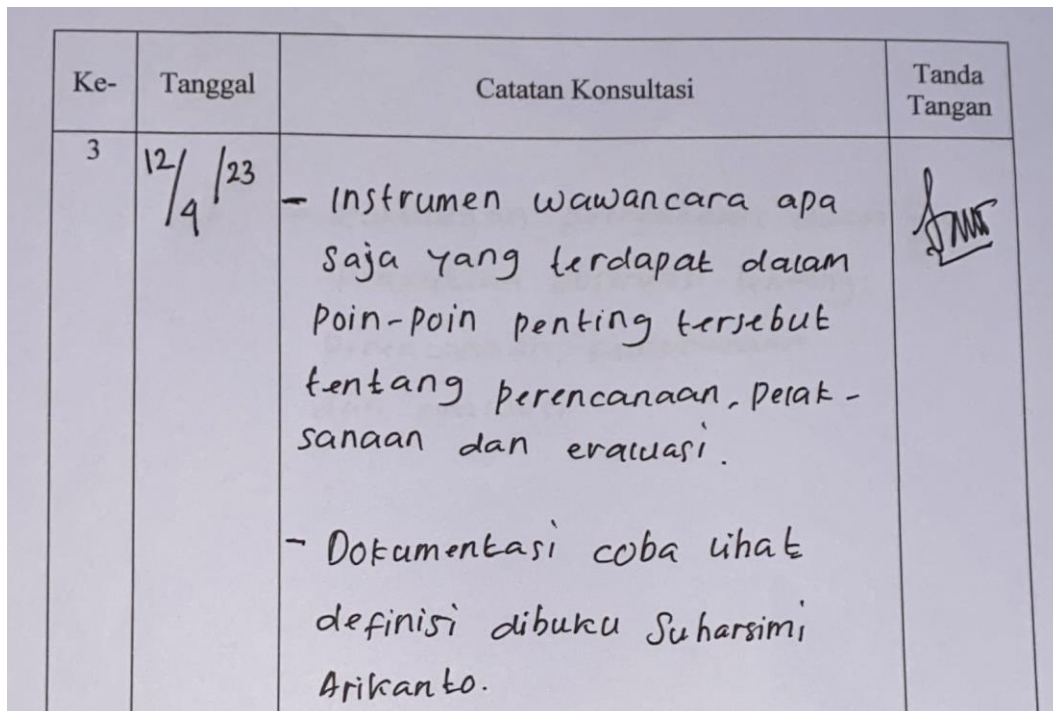 Ke- Tanggal Catatan Konsultasi Tanda
Tangan
3 12/4/23 - Instrumen wawancara apa
saja yang terdapat dalam
poin-poin penting tersebut
tentang perencanaan, pelak-
sanaan dan evaluasi.
- Dokumentasi coba lihat
definisi dibuku Suharsimi
Arikanto.